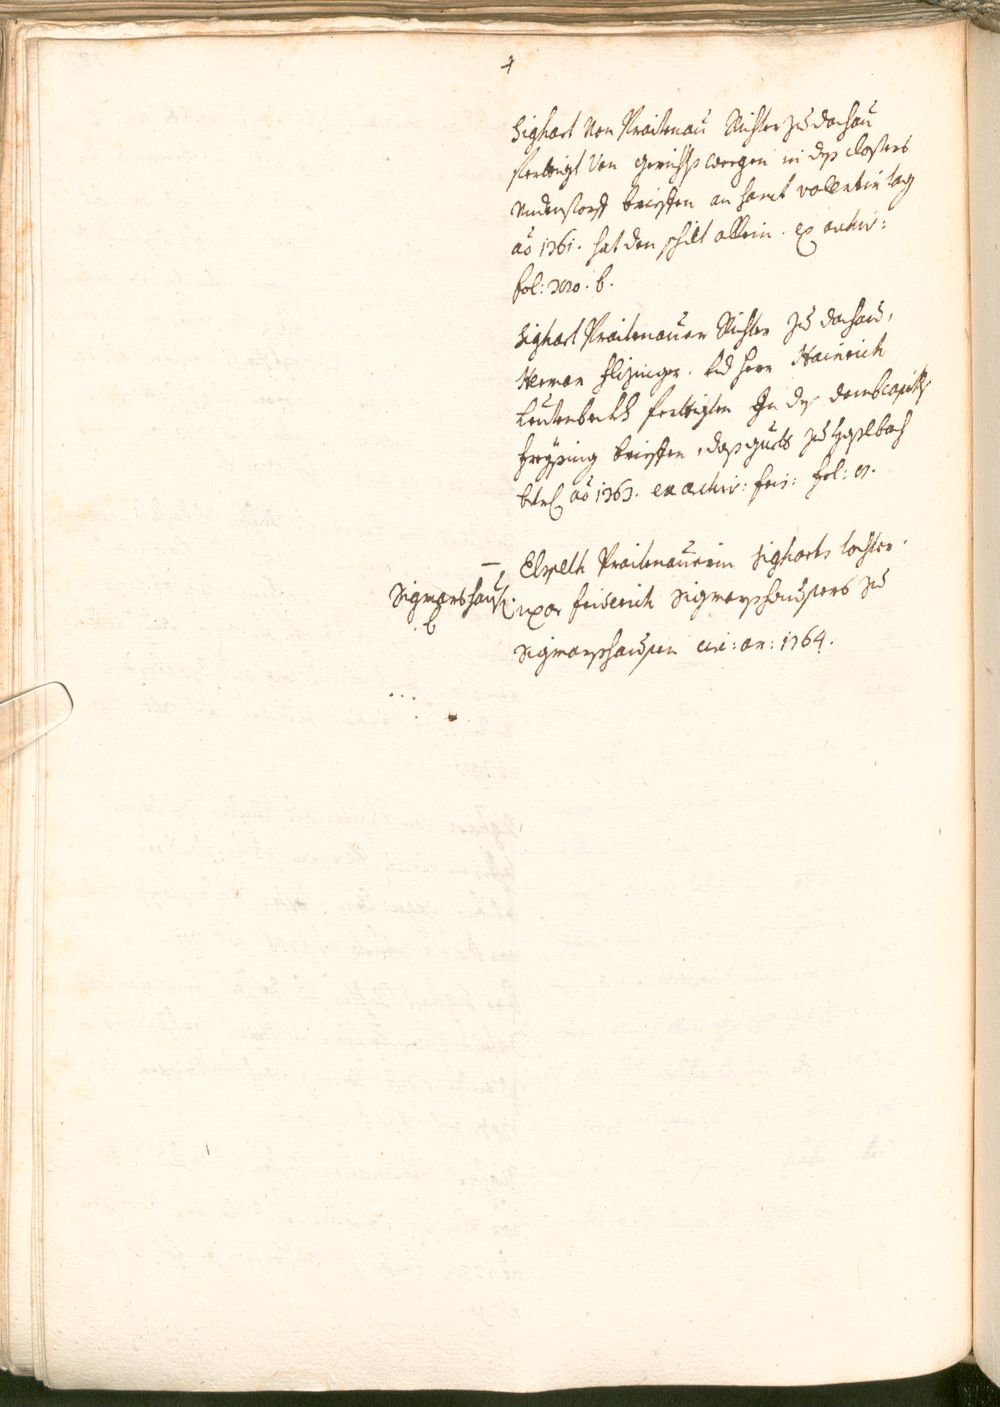 Sighart Von Praitenau Richter zu dachau
fertigt Von gerichts weegen in des closters
Undenstorff brieffen an sanct valentin tag
ao 1361. hat den schilt allein. ex archiv:
fol: b.
Sighart Praitenauer Richter zu dachau,
Herman und herr Hainrich
fertigten In des dombcapitls
Freysing brieffen, das guets zu
betr ao 1363. ex archiv: fris: fol:
— Elspeth Praitenauerin Sigharts tochter.
Sigmarshaus. uxor friderich Sigmarshausers zu
Sigmarshausen an: 1364.